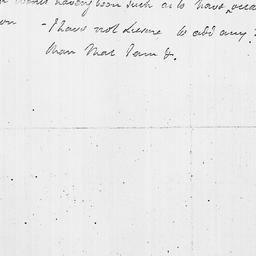 having been such as to have
- I have not Liesure to add any
than that I am &.